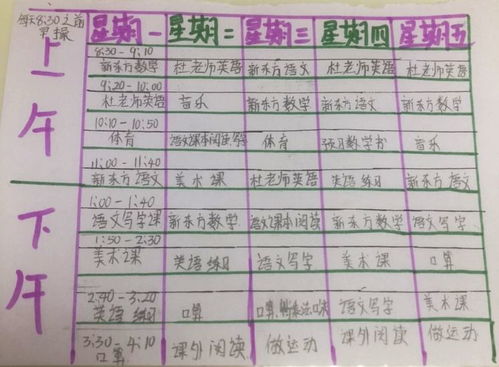 每天8:30之前
早操
星期一 星期二 星期三 星期四 星期五
上午
8:30-9:10
新东方数学 杜老师英语 新东方语文 杜老师英语 杜老师英语
9:20-10:00
杜老师英语 音乐 新东方数学 新东方语文 新东方数学
10:10-10:50
体育 语文课本阅读写字 体育 预习数学书 音乐
11:00-11:40
新东方语文 美术课 杜老师英语 英语练习 新东方语文
下午
1:00-1:40
语文写字课 新东方数学 语文课本阅读 新东方数学 语文写字
1:50-2:30
美术课 英语练习 语文写字 美术课 口算
2:40-3:20
英语练习 口算 口算, 语文写字 美术课
3:30-4:10
口算 课外阅读 做运动 课外阅读 做运动